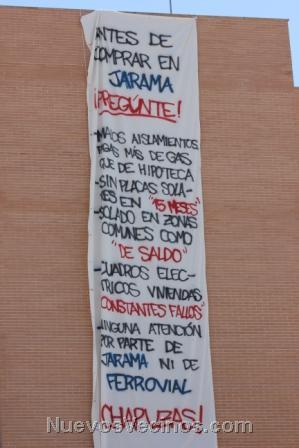 ANTES DE
COMPRAR EN
JARAMA
¡PREGÚNTE!
-MALOS AISLAMIENTOS
PAGAS MÁS DE GAS
QUE DE HIPOTECA
-SIN PLACAS SOLA-
RES EN "15 MESES"
-SOLADO EN ZONAS
COMUNES COMO
"DE SALDO"
-CUADROS ELEC-
TRICOS VIVIENDAS,
"CONSTANTES FALLOS"
-NINGUNA ATENCIÓN
POR PARTE DE
JARAMA NI DE
FERROVIAL
CHAPUZAS!
NuevosVecinos.com